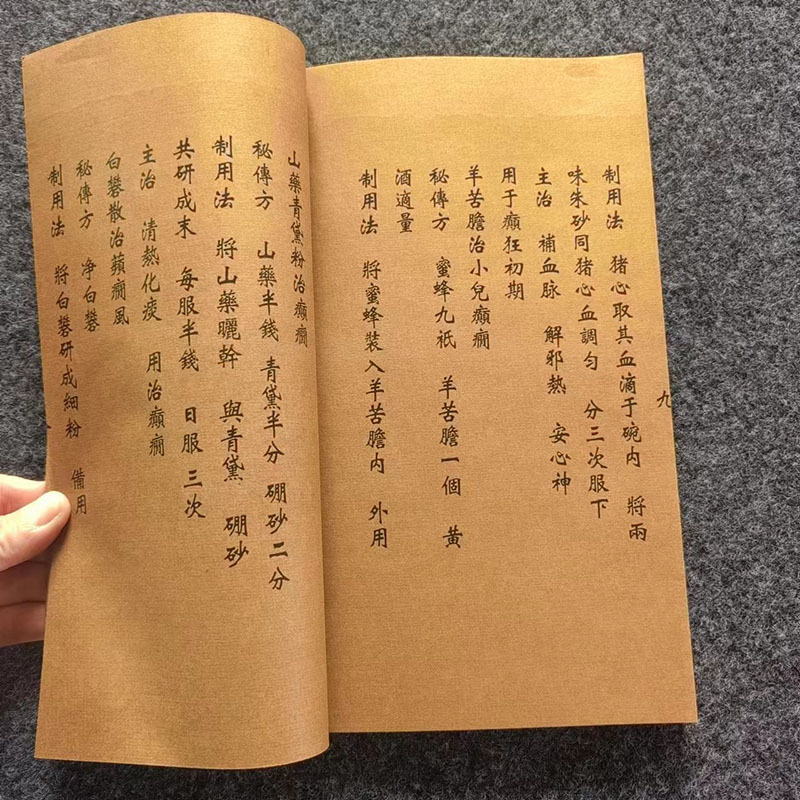 九
制用法 猪心取其血滴于碗内 將兩
味朱砂同猪心血調匀 分三次服下
主治 補血脉 解邪熱 安心神
用于癲狂初期
羊苦膽治小兒癲癇
秘傳方 蜜蜂九祇 羊苦膽一個 黄
酒適量
制用法 將蜜蜂裝入羊苦膽内 外用
山藥青黛粉治癲癇
秘傳方 山藥半錢 青黛半分 硼砂二分
制用法 將山藥曬幹 與青黛 硼砂
共研成末 每服半錢 日服三次
主治 清熱化痰 用治癲癇
白礬散治蘋癇風
秘傳方 净白礬
制用法 將白礬研成細粉 備用